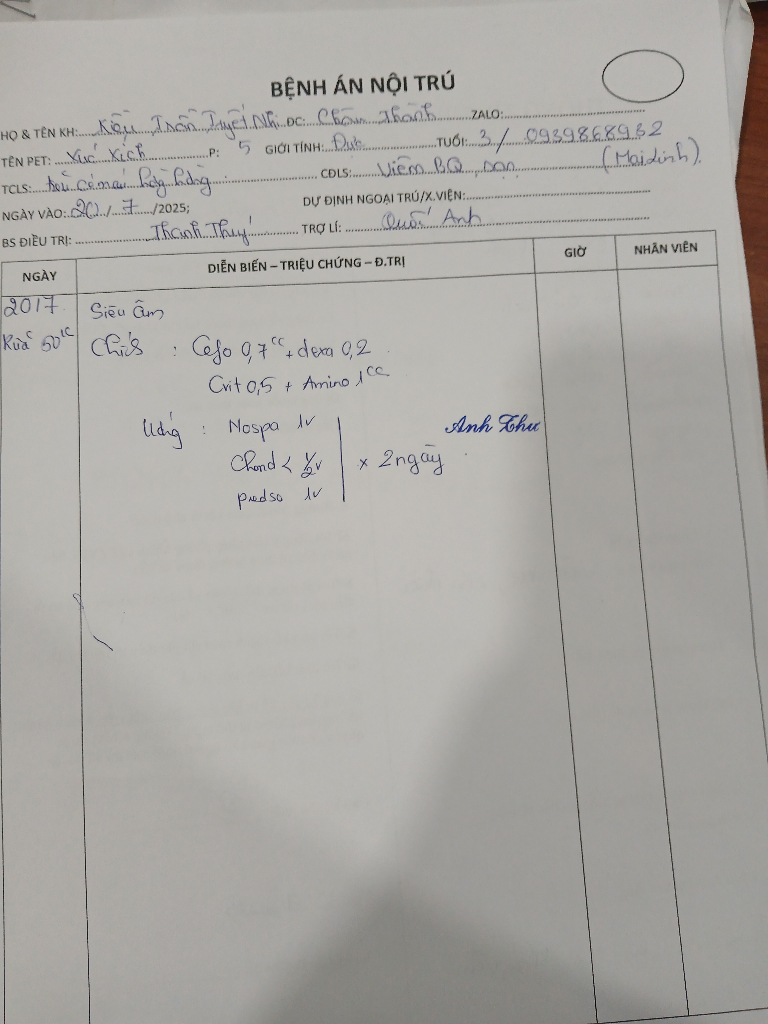 BỆNH ÁN NỘI TRÚ
HỌ & TÊN KH: Kiều Trần Tuyết Nhi ĐC: Châu Thành ZALO:
TÊN PET: Xúc Xích P: 5 GIỚI TÍNH: Đực TUỔI: 3 / 0939868932
TCLS: CĐLS: Viêm BQ, sạn (Mai Linh).
NGÀY VÀO: 20 / 7 /2025; DỰ ĐỊNH NGOẠI TRÚ/X.VIỆN:
BS ĐIỀU TRỊ: Thanh Thuý TRỢ LÍ: Quốc Anh
NGÀY DIỄN BIẾN – TRIỆU CHỨNG – Đ.TRỊ GIỜ NHÂN VIÊN
20/7 Siêu âm
50 Chích : Cefo 0,7cc + dexa 0,2
Cvit 0,5 + Amino 1cc
Uống : Nospa 1v Anh Thu
1/2v x 2 ngày
predso 1v